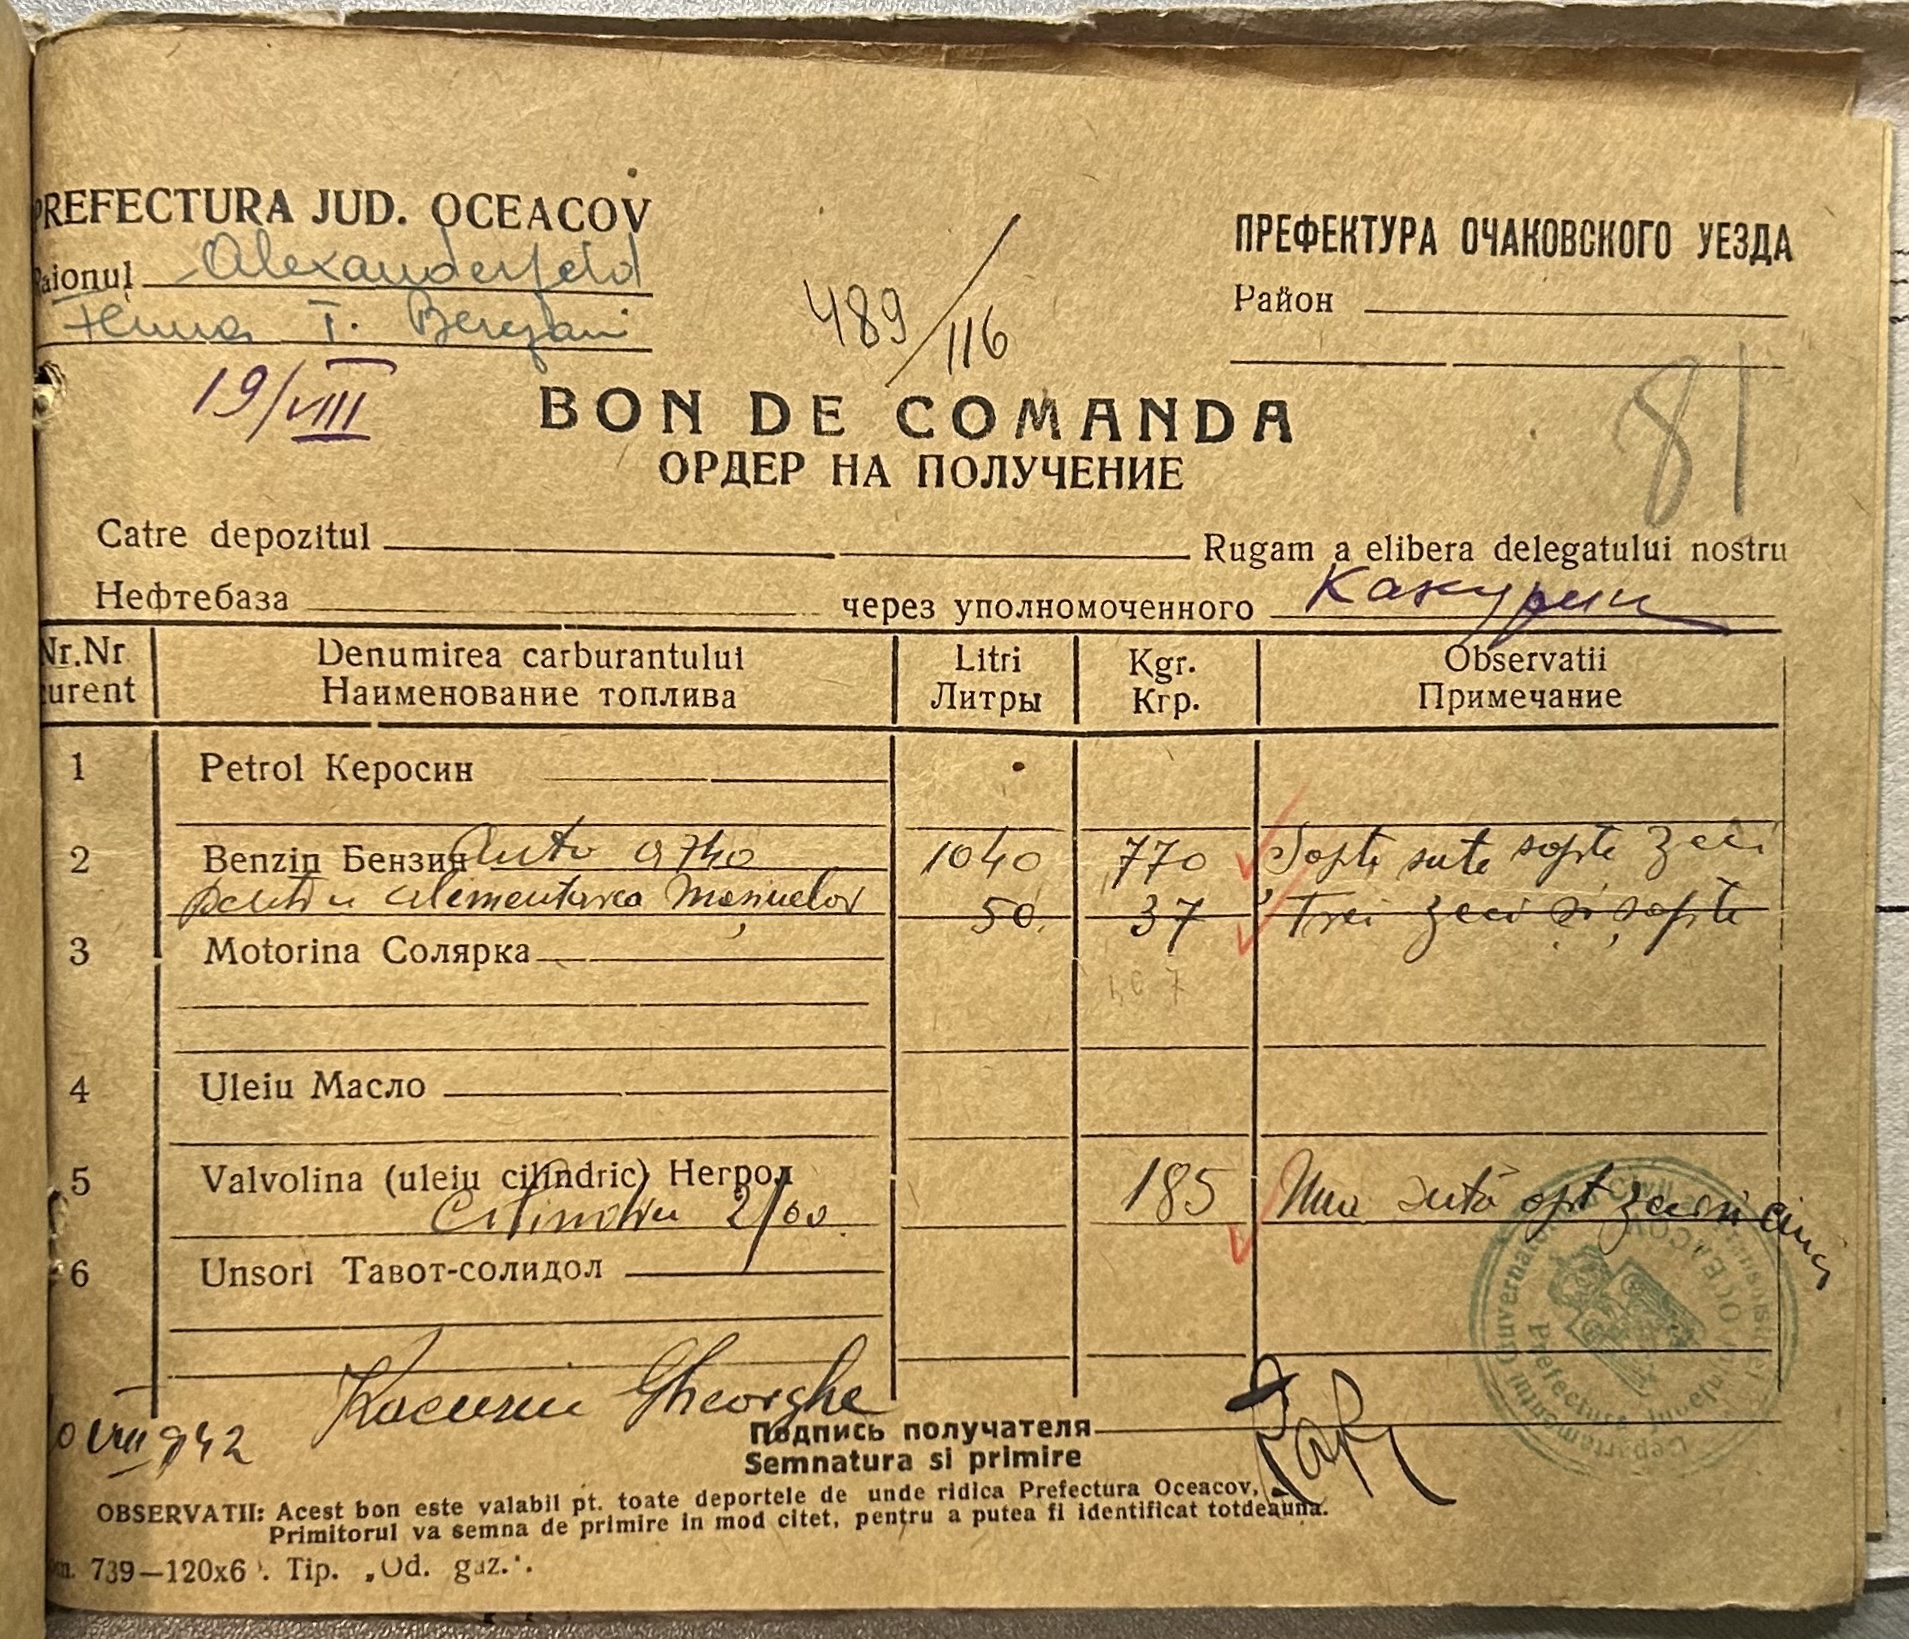 PREFECTURA JUD. OCEACOV
Raionul Alexanderfeld
Ferma T.
ПРЕФЕКТУРА ОЧАКОВСКОГО УЕЗДА
Район
489/116
81
19/VIII
BON DE COMANDA
ОРДЕР НА ПОЛУЧЕНИЕ
Catre depozitul Rugam a elibera delegatului nostru
Нефтебаза через уполномоченного
Nr.Nr Denumirea carburantului Litri Kgr. Observatii
curent Наименование топлива Литры Кгр. Примечание
1 Petrol Керосин
2 Benzin Бензин auto 0740 1040 770 Șapte sute șapte zeci
pentru alimentarea mașinelor 50 37 Trei zeci și șapte
3 Motorina Солярка
4 Uleiu Масло
5 Valvolina (uleiu cilindric) Негрол
Cilindru 2/00 185 Una sută opt zeci și cinci
6 Unsori Тавот-солидол
Gheorghe
VIII 942
Подпись получателя
Semnatura si primire
OBSERVATII: Acest bon este valabil pt. toate deportele de unde ridica Prefectura Oceacov,
Primitorul va semna de primire in mod citet, pentru a putea fi identificat totdeauna.
739—120x6 . Tip. „Od. gaz.".